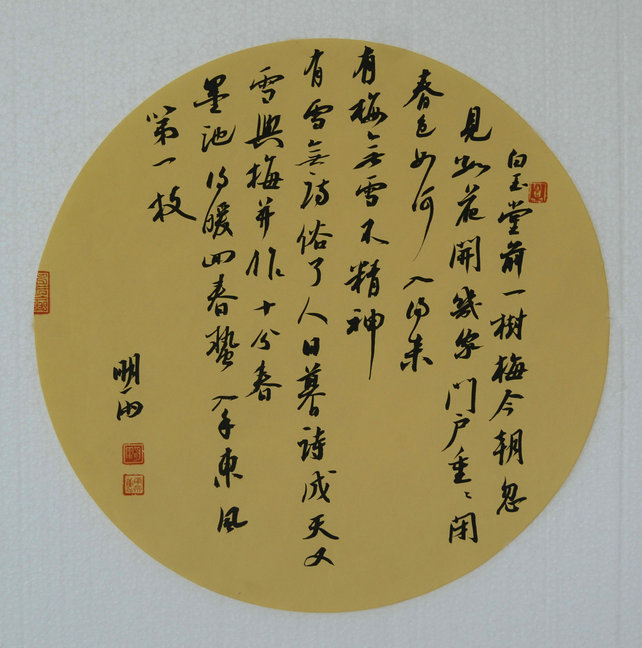 白玉堂前一樹梅今朝忽
見數花開幾家門户重〻閉
春色如何入得来
有梅無雪不精神
有雪無詩俗了人日暮詩成天又
雪與梅并作十分春
墨池得暖回春蟄入手東風
第一枝
明雨